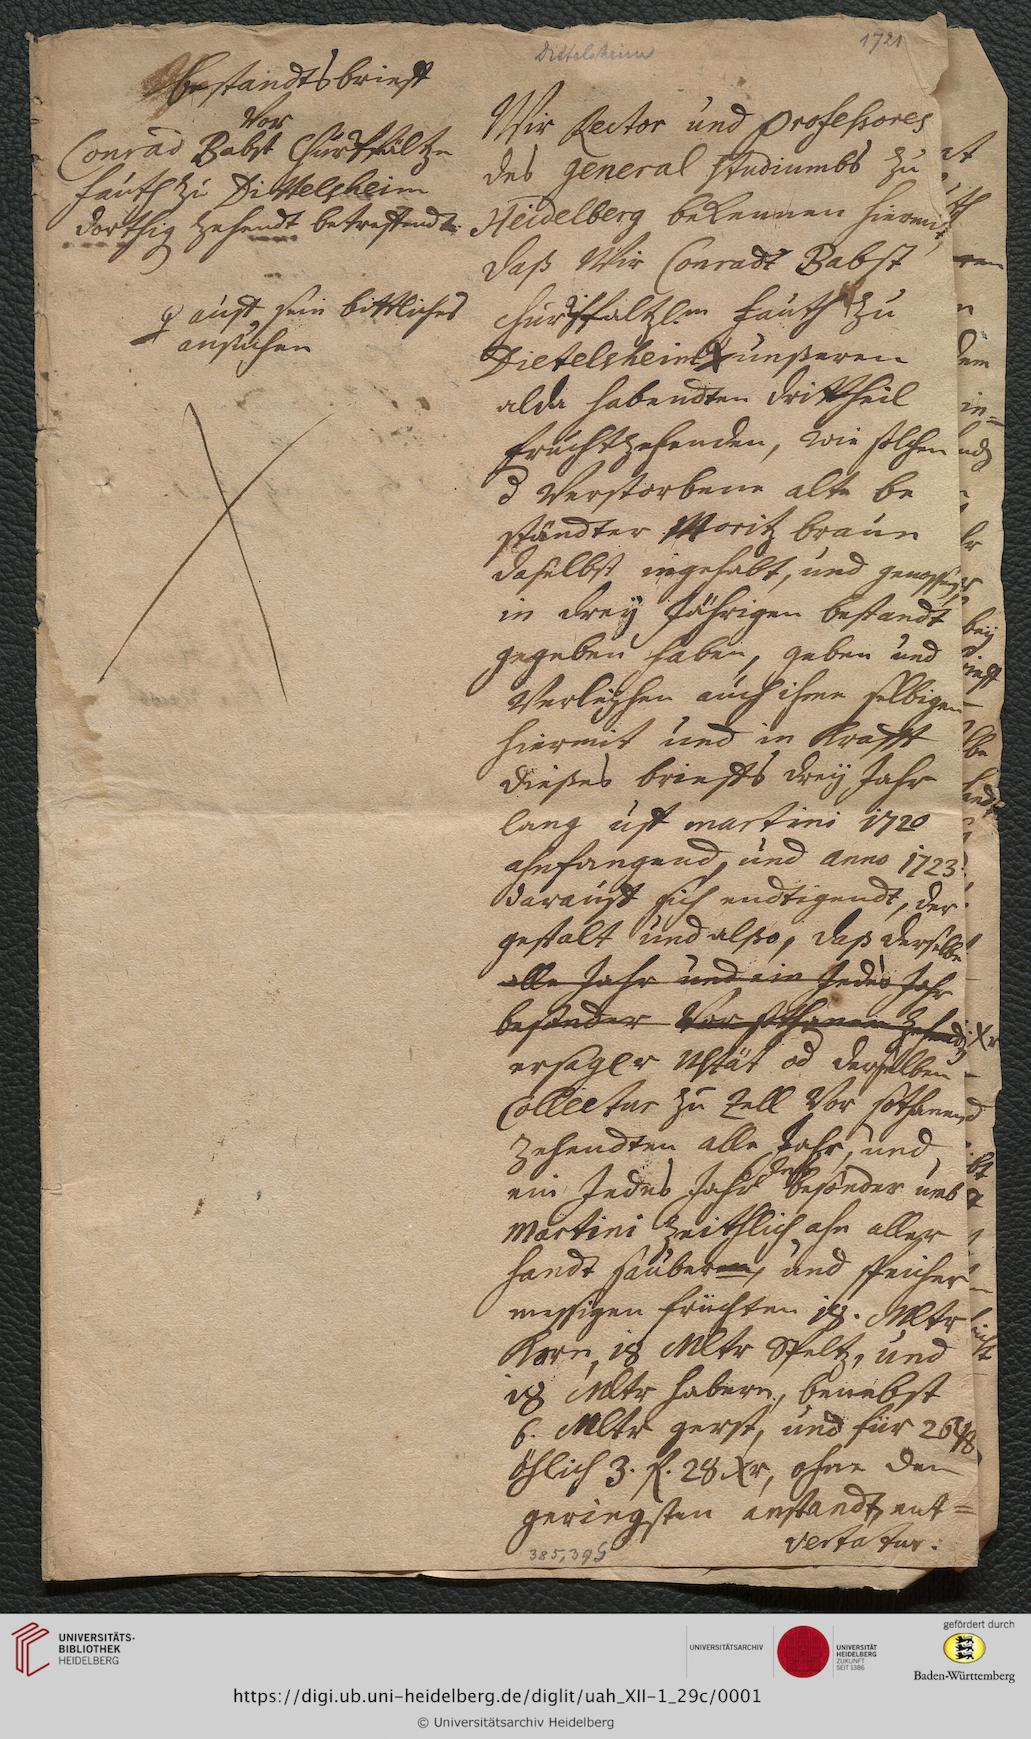 Dittelsheim
1721
Bestandtsbrieff
Vor
Conrad Babst Churpfältz.
Fauth zu Dittelsheim
dorthig Zehendt betreffendt.
auff sein bittliches
ansuchen
Wir Rector und Professores
des General Studiumbs zu
Heidelberg bekennen hiermit,
daß Wir Conradt Babst
Churpfaltzl.m Fauth zu
Dietelsheim unßeren
alda habendten drittheil
fruchtzehenden, wie solchen
d Verstorbene alte be
ständter Moritz Braun
daselbst ingehabt, und genoßen,
in drey Jährigen bestandt
gegeben haben, geben und
Verleyhen auch ihme selbigen
hiermit und in Krafft
dießes brieffs drey Jahr
lang uff martini 1720
ahnfangend, und anno 1723
darauff sich endtigendt, der
gestalt und alßo, daß derselbe
alle Jahr und ein Jedes Jahr
besonder Vor sothanen Zehend
ersagter Ustät od derselben
Collectur zu Zell Vor sothanen
Zehendten alle Jahr, und
ein Jedes Jahr besonder umb
Martini Zeithlich ahn aller
handt sauberen, und speicher
messigen früchten 18. Mltr
Korn, 18 Mltr Speltz, und
18 Mltr habern, benebst
6. Mltr gerst, und für 26
öhlich 3. f. 28 Xr, ohne den
geringsten anstandt, ent=
vertatur:
385,39
UNIVERSITÄTS-
BIBLIOTHEK
HEIDELBERG
UNIVERSITÄTSARCHIV
UNIVERSITÄT
HEIDELBERG
ZUKUNFT
SEIT 1386
gefördert durch
Baden-Württemberg
https://digi.ub.uni-heidelberg.de/diglit/uah_XII-1_29c/0001
© Universitätsarchiv Heidelberg